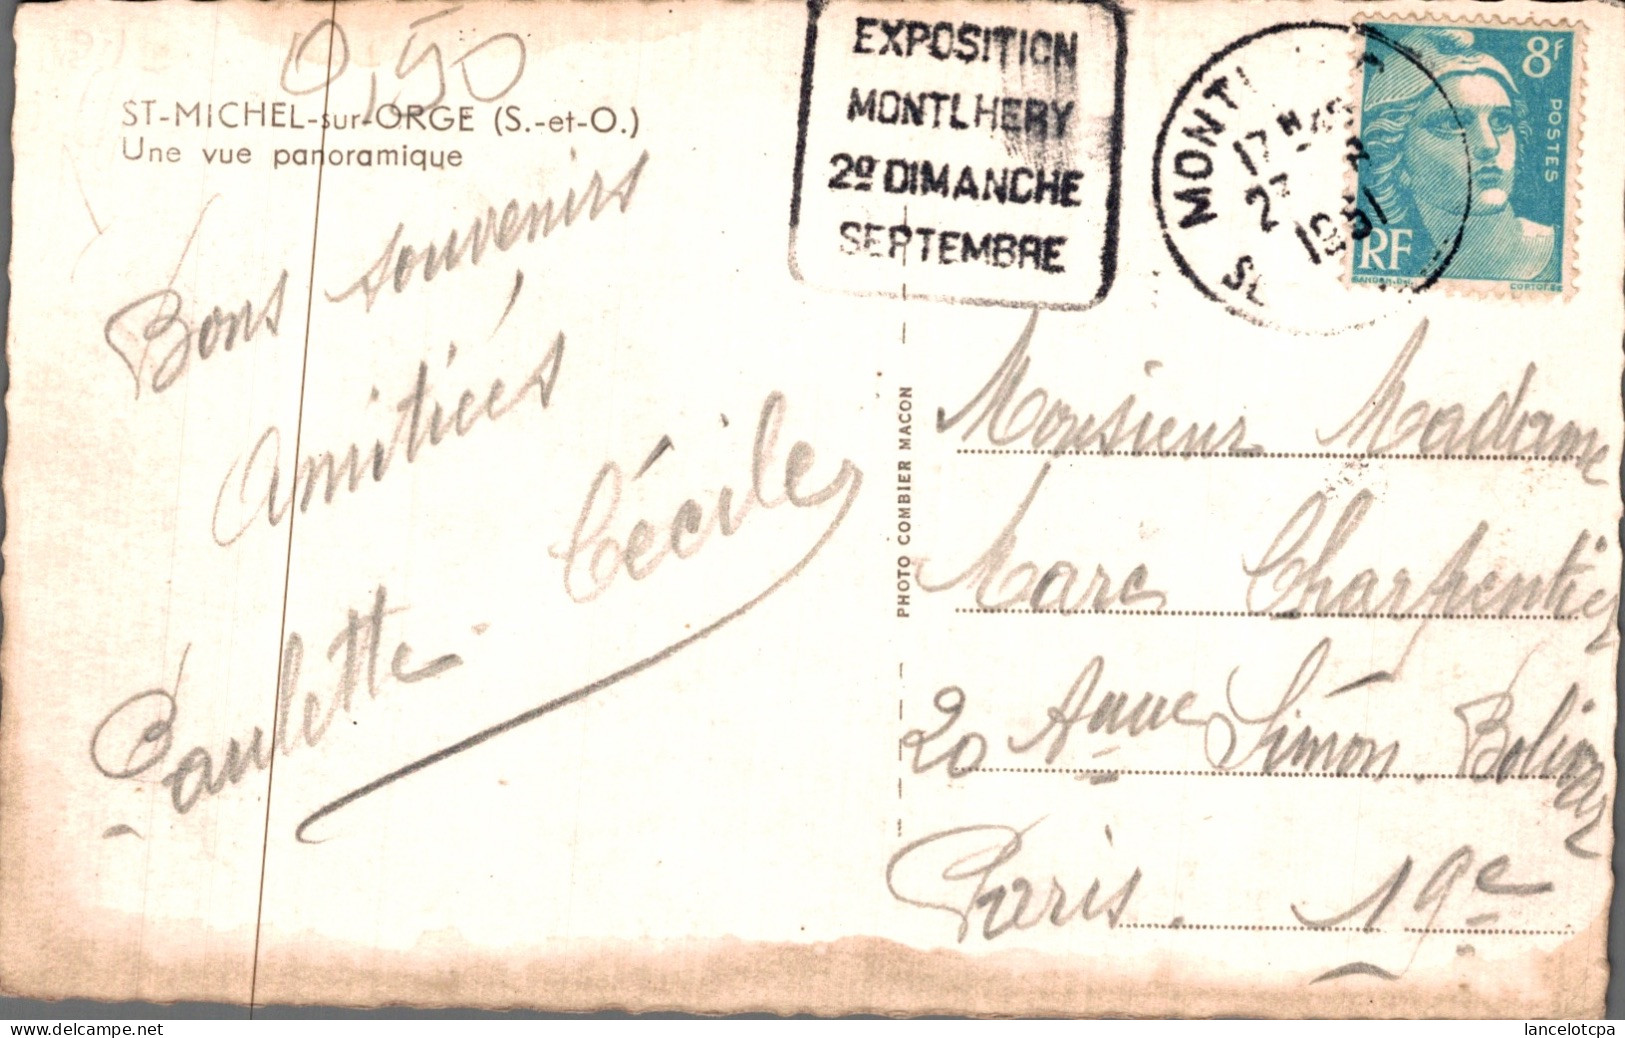 0,50
ST-MICHEL-sur-ORGE (S.-et-O.)
Une vue panoramique
Bons souvenirs
Amitiés
Cécile
Paulette
EXPOSITION
MONTLHERY
2e DIMANCHE
SEPTEMBRE
MONTL
17H
1951
8F
POSTES
RF
PHOTO COMBIER MACON
Monsieur Madame
Marc Charpentier
20 Anue Simon Bolivar
Paris. 19e
delcampe.net
lancelotcpa